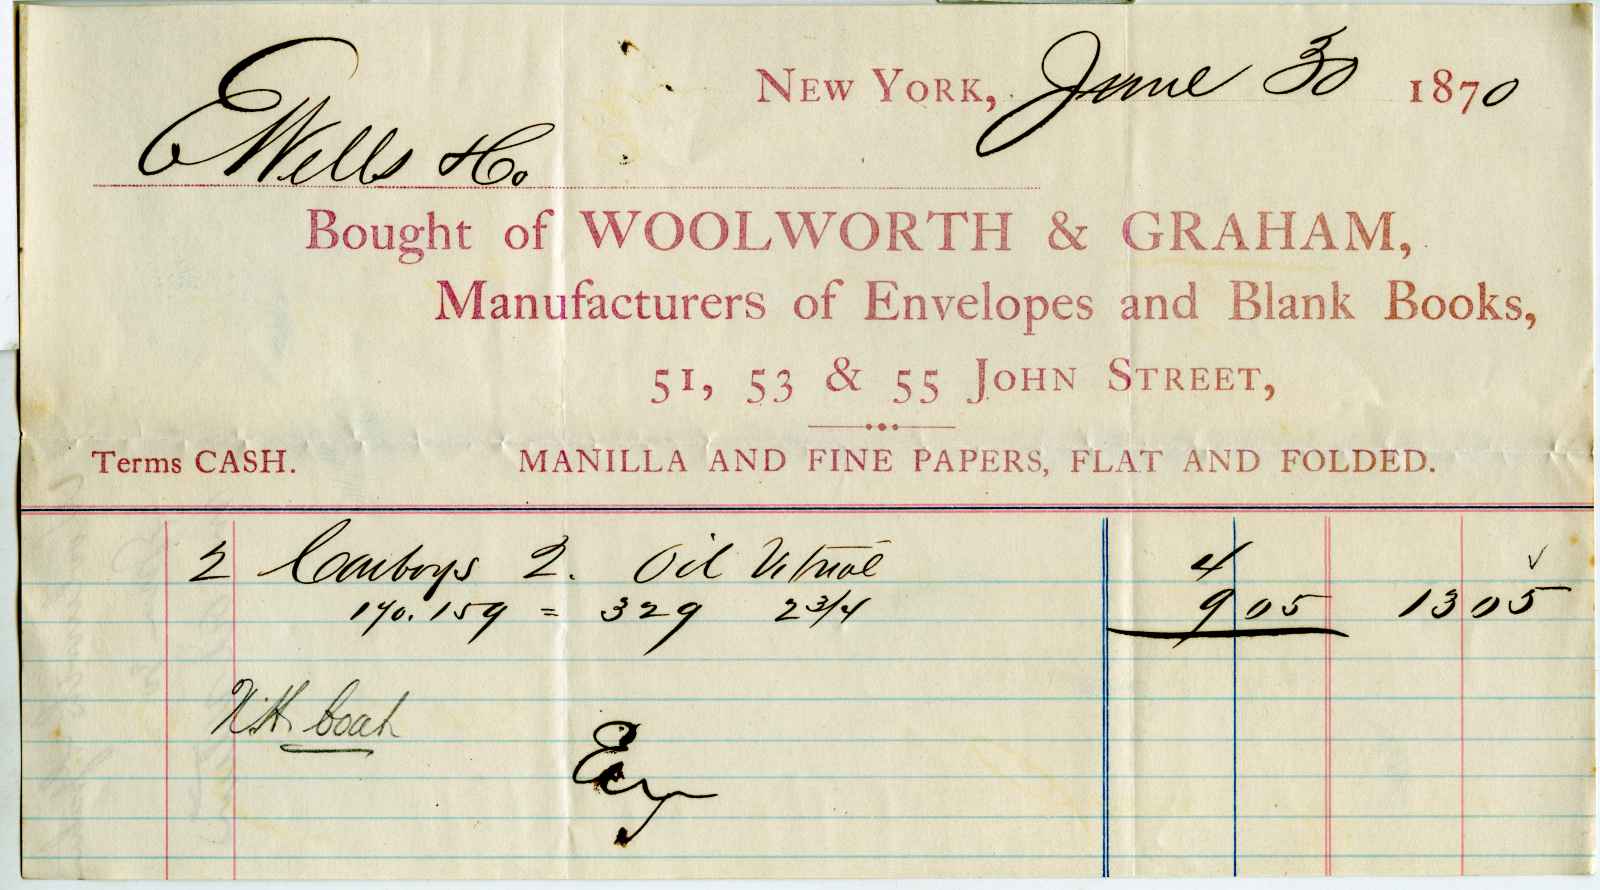 New York, June 30 1870
E Wells & Co.
Bought of WOOLWORTH & GRAHAM,
Manufacturers of Envelopes and Blank Books,
51, 53 & 55 John Street,
Terms CASH. MANILLA AND FINE PAPERS, FLAT AND FOLDED.
2 Carboys 2. Oil Vitriol 4
170. 159 = 329 2 3/4 9 05 13 05
N.H. boat